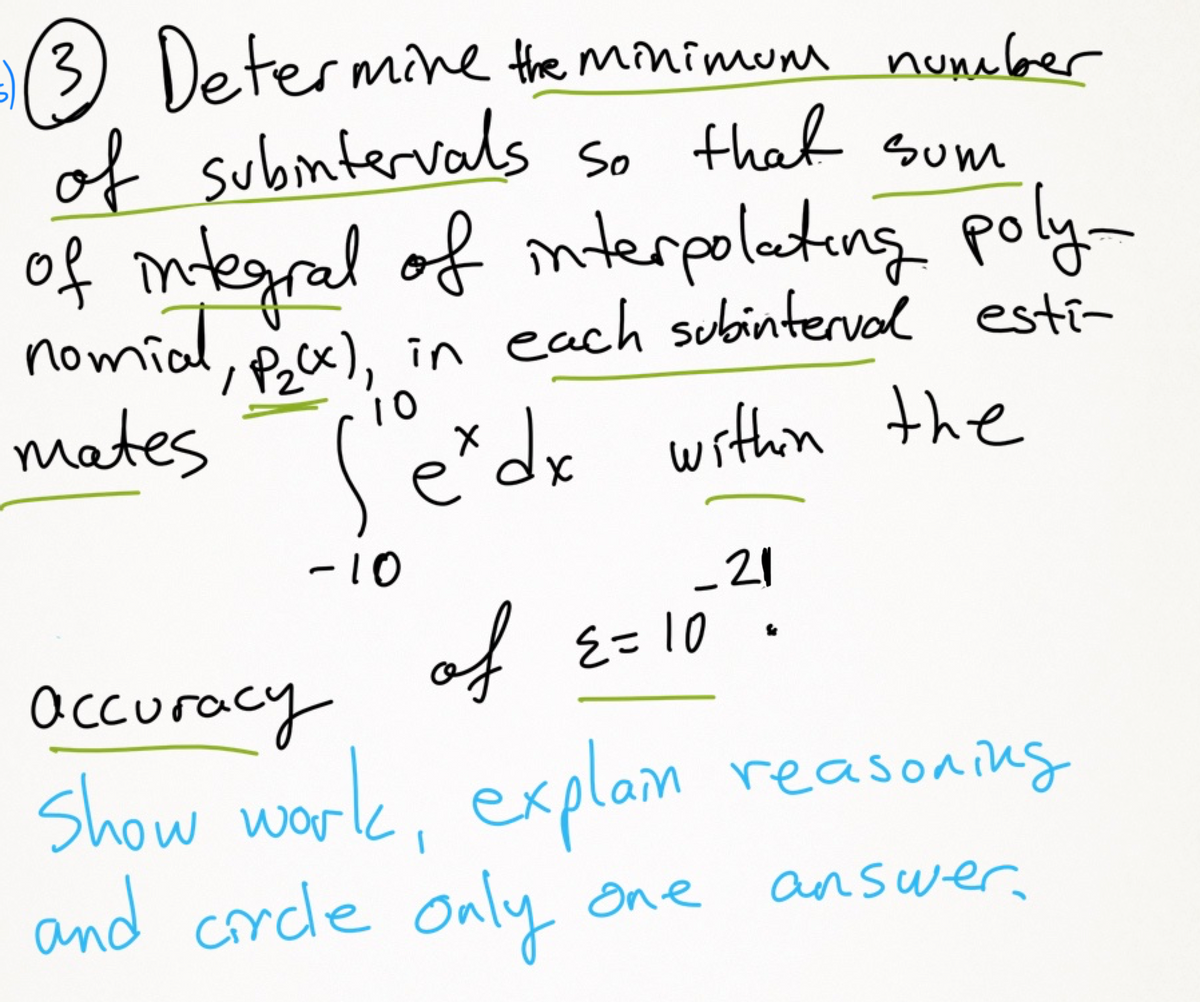 s) ③ Determine the minimum number
of subintervals so that sum
of integral of interpolating poly-
nomial, p₂(x), in each subinterval esti-
mates ∫₋₁₀¹⁰ eˣ dx within the
accuracy of ε = 10⁻²¹.
Show work, explain reasoning
and circle only one answer.